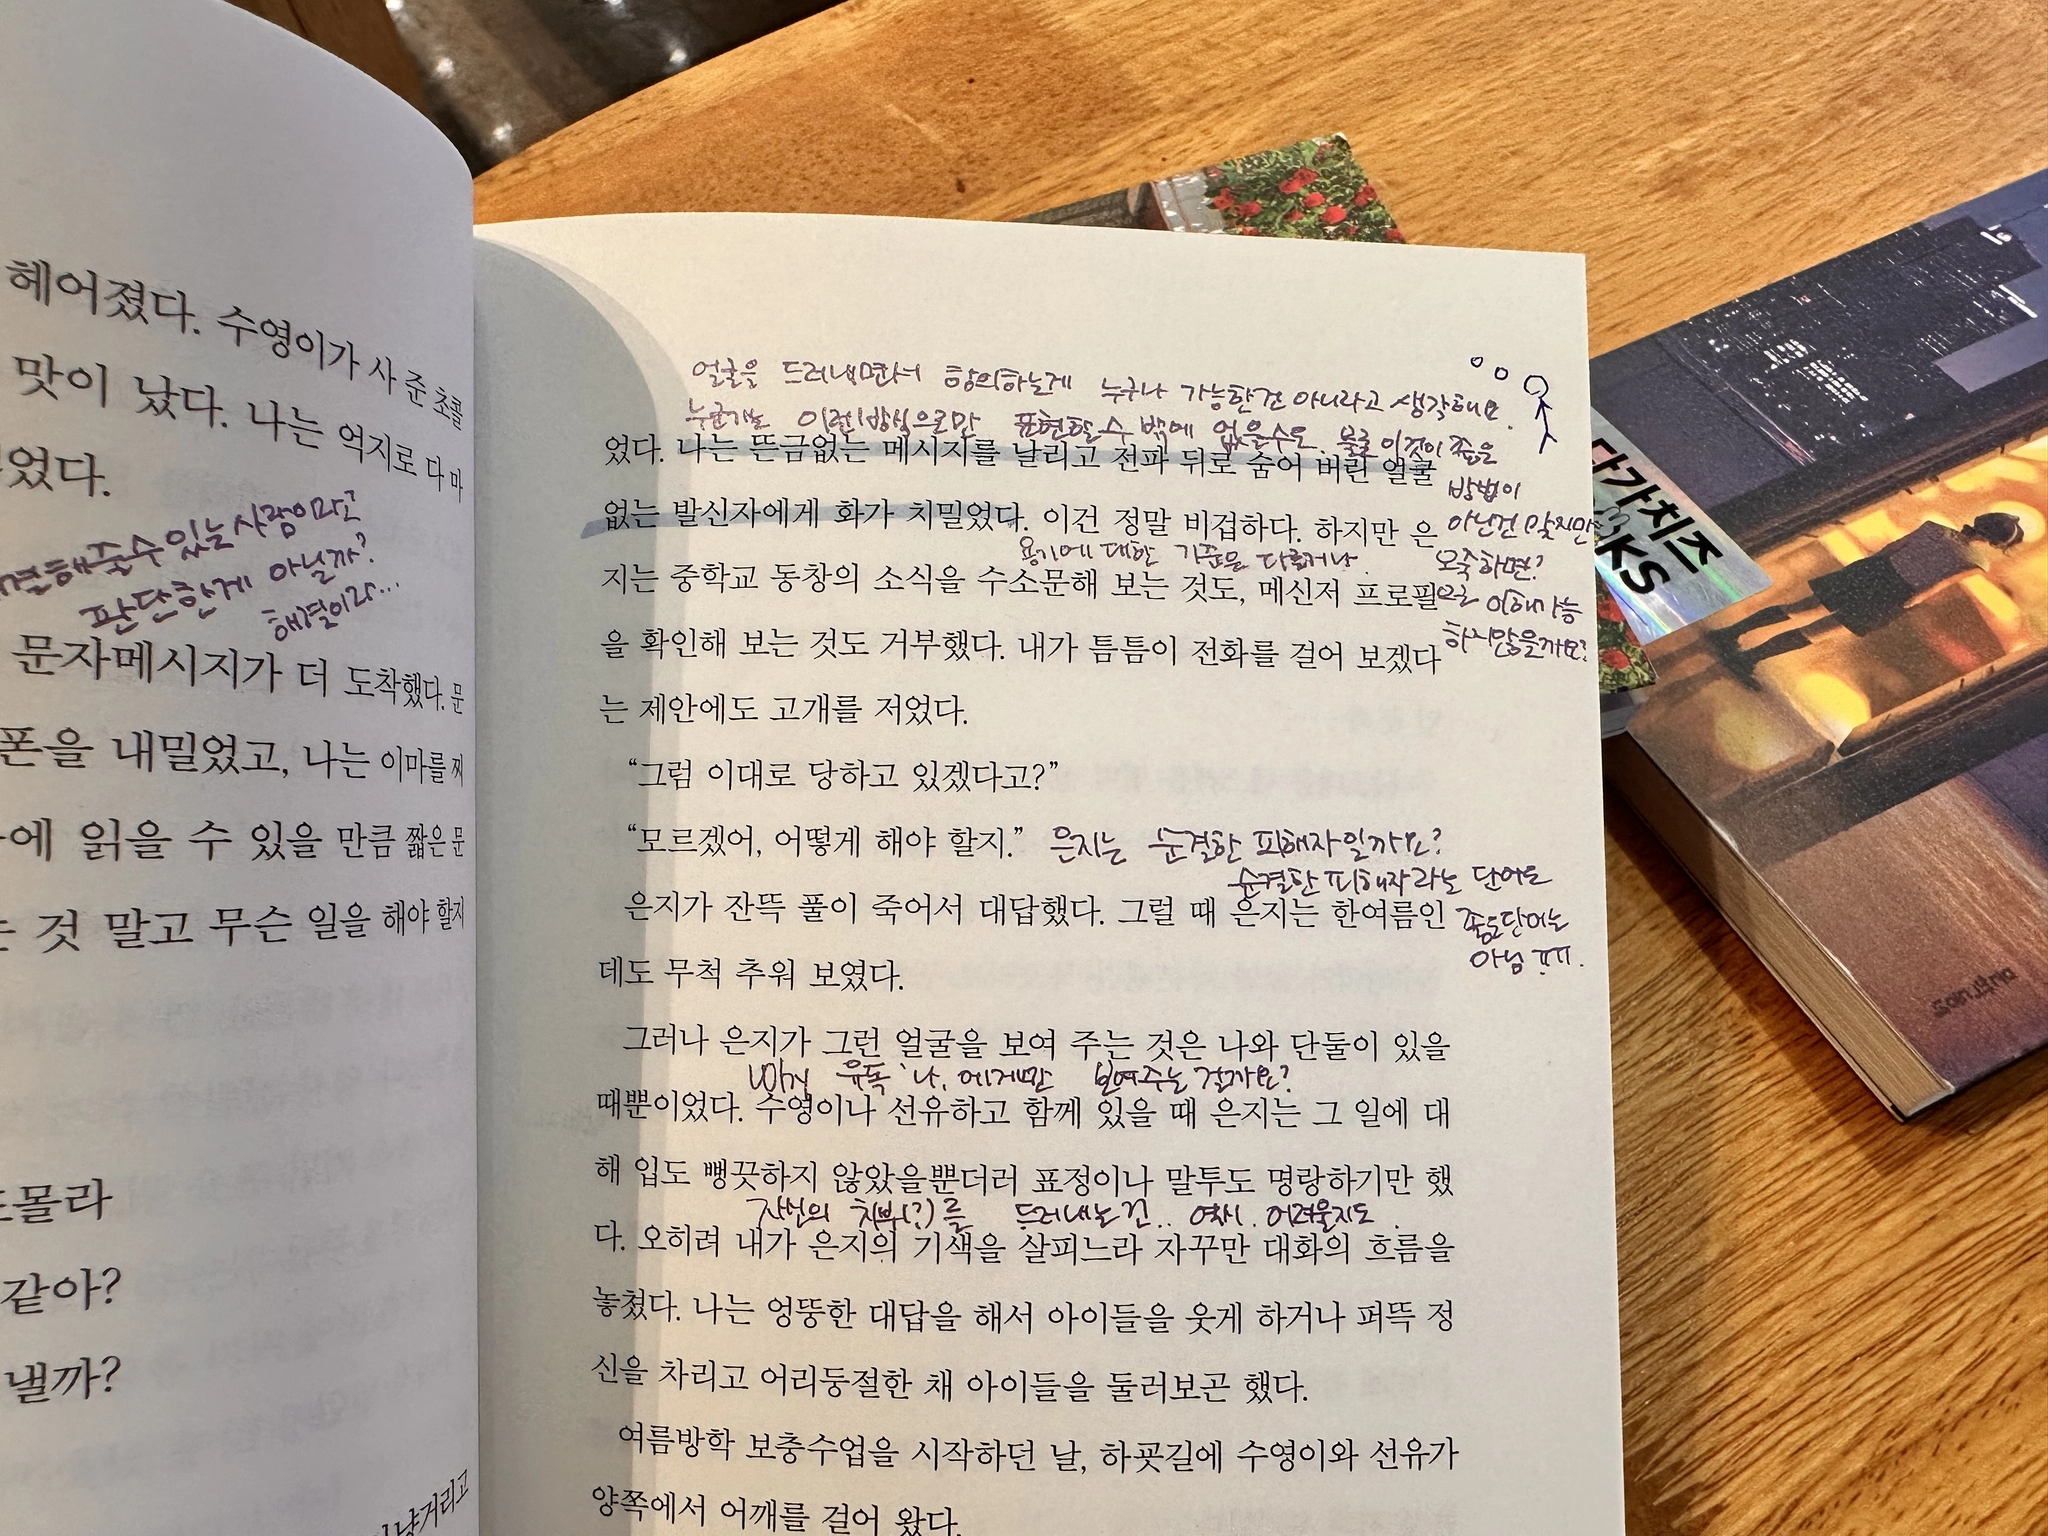 헤어졌다. 수영이가 사 준 초콜
맛이 났다. 나는 억지로 다 마
었다.
해줄수 있는 사람이라고
판단한게 아닐까?
해결이라...
문자메시지가 더 도착했다. 문
폰을 내밀었고, 나는 이마를 찌
에 읽을 수 있을 만큼 짧은 문
는 것 말고 무슨 일을 해야 할지
몰라
같아?
낼까?
거리고
얼굴을 드러내면서 항의하는게 누구나 가능한건 아니라고 생각해요.
누군가는 이런 방식으로만 표현할 수 밖에 없을수도. 물론 이것이 좋은
방법이
아닌건 맞지만
오죽하면?
으로 이해가능
하지않을까요?
었다. 나는 뜬금없는 메시지를 날리고 전파 뒤로 숨어 버린 얼굴
없는 발신자에게 화가 치밀었다. 이건 정말 비겁하다. 하지만 은
용기에 대한 기준은 다르거나.
지는 중학교 동창의 소식을 수소문해 보는 것도, 메신저 프로필
을 확인해 보는 것도 거부했다. 내가 틈틈이 전화를 걸어 보겠다
는 제안에도 고개를 저었다.
“그럼 이대로 당하고 있겠다고?”
“모르겠어, 어떻게 해야 할지.” 은지는 순결한 피해자일까요?
순결한 피해자라는 단어도
좋은단어는
아님 ㅠㅠ.
은지가 잔뜩 풀이 죽어서 대답했다. 그럴 때 은지는 한여름인
데도 무척 추워 보였다.
그러나 은지가 그런 얼굴을 보여 주는 것은 나와 단둘이 있을
why 유독 '나'에게만 보여주는 걸까요?
때뿐이었다. 수영이나 선유하고 함께 있을 때 은지는 그 일에 대
해 입도 뻥끗하지 않았을뿐더러 표정이나 말투도 명랑하기만 했
자신의 치부(?)를 드러내는건.. 역시. 어려울지도.
다. 오히려 내가 은지의 기색을 살피느라 자꾸만 대화의 흐름을
놓쳤다. 나는 엉뚱한 대답을 해서 아이들을 웃게 하거나 퍼뜩 정
신을 차리고 어리둥절한 채 아이들을 둘러보곤 했다.
여름방학 보충수업을 시작하던 날, 하굣길에 수영이와 선유가
양쪽에서 어깨를 걸어 왔다.
다가치즈